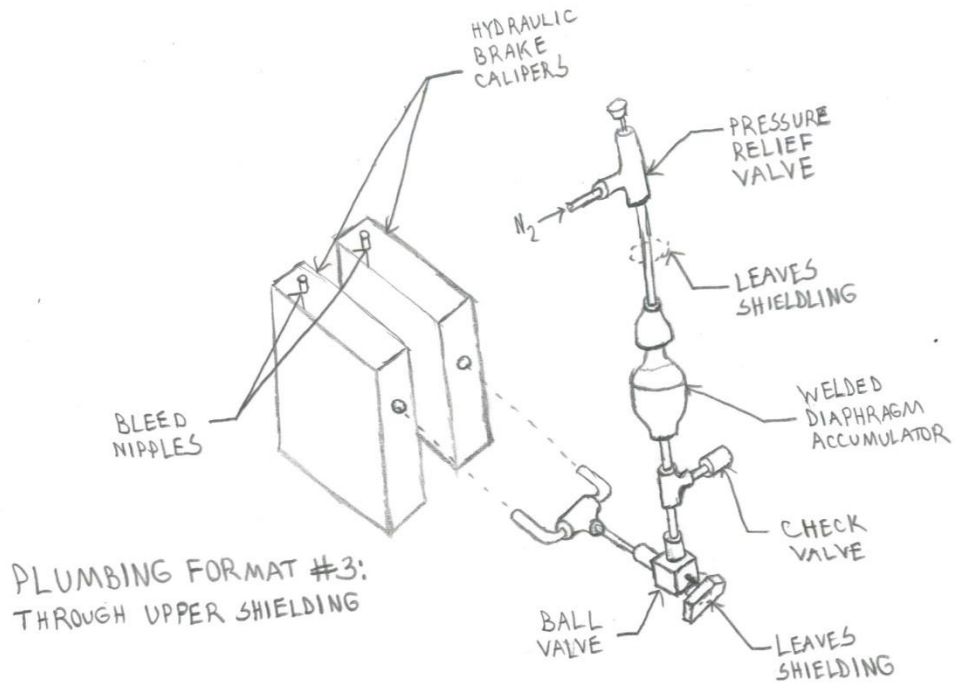 HYDRAULIC
BRAKE
CALIPERS
PRESSURE
RELIEF
VALVE
N2
LEAVES
SHIELDLING
WELDED
DIAPHRAGM
ACCUMULATOR
BLEED
NIPPLES
CHECK
VALVE
PLUMBING FORMAT #3:
THROUGH UPPER SHIELDING
BALL
VALVE
LEAVES
SHIELDING